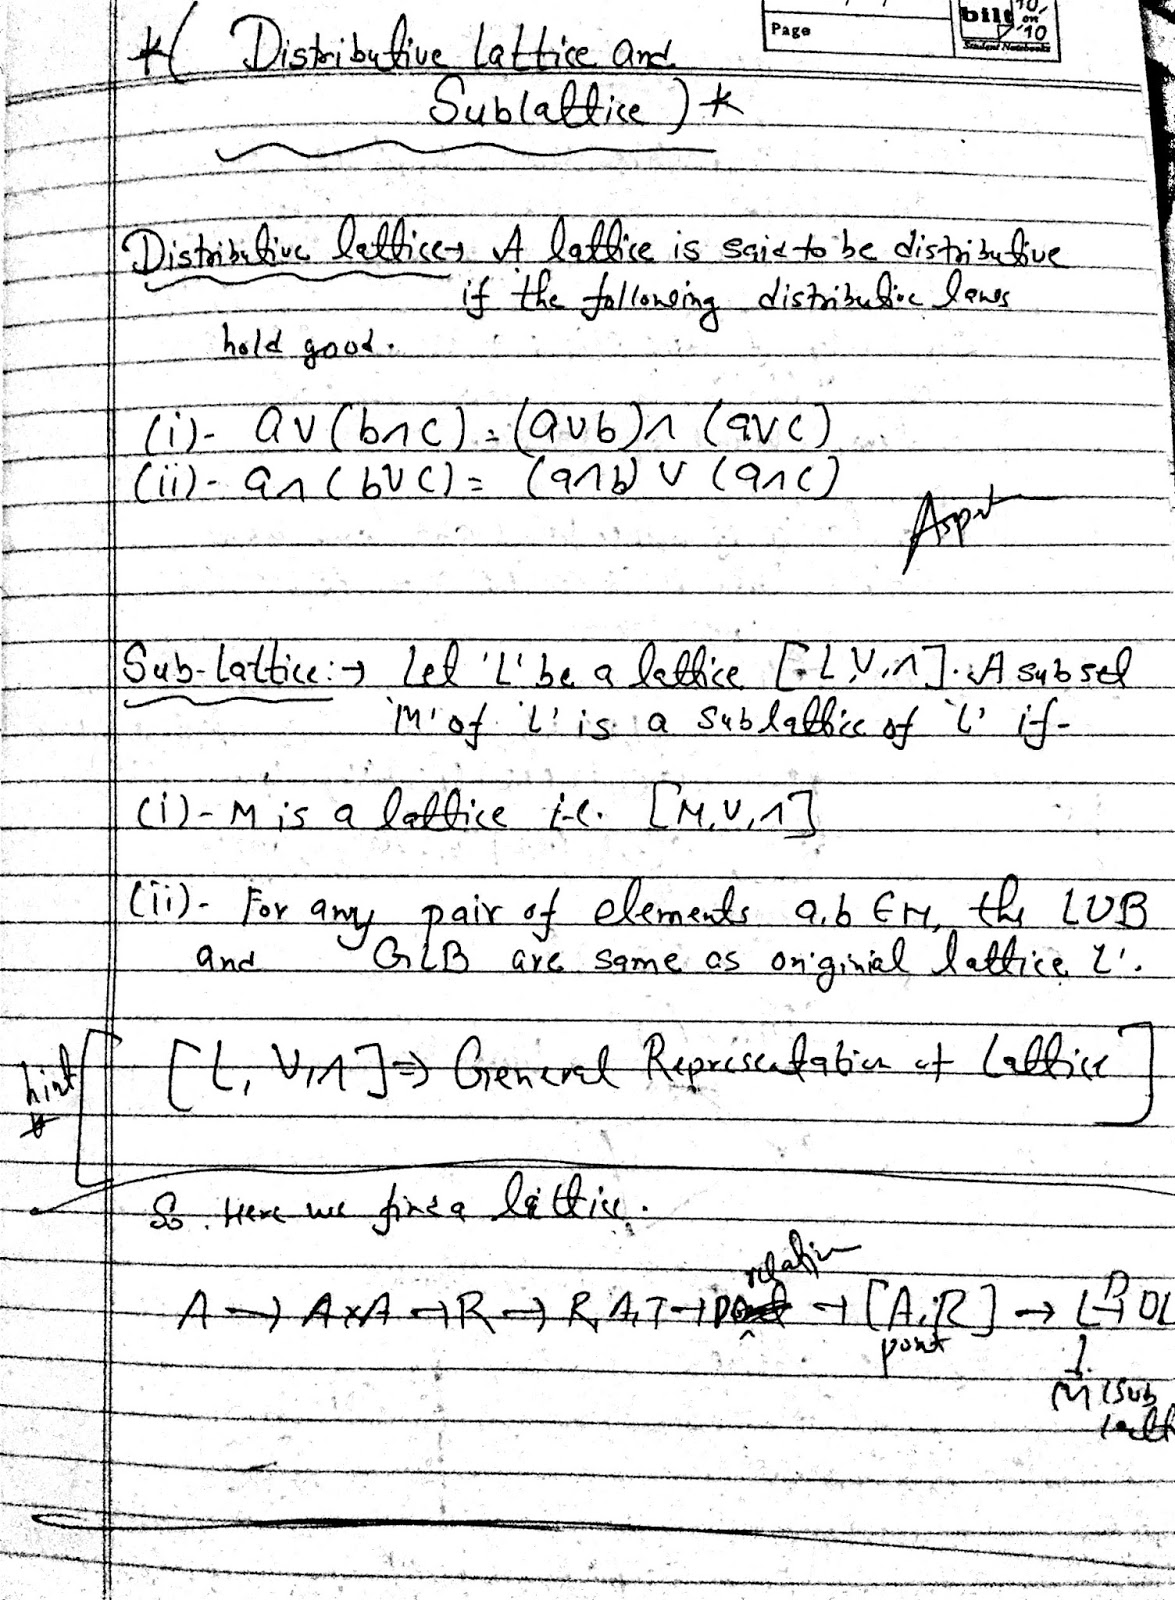 Page
bilt 10 on 10
Student Notebooks
*( Distributive Lattice and
Sublattice ) *
Distributive lattice→ A lattice is said to be distributive
if the following distributive laws
hold good.
(i)- a∨(b∧c) = (a∨b)∧ (a∨c)
(ii)- a∧ (b∨c) = (a∧b) ∨ (a∧c)
Sub-Lattice:→ Let 'L' be a lattice [L,∨,∧]. A subset
'M' of 'L' is a sublattice of 'L' if-
(i)- M is a lattice i.e. [M,∨,∧]
(ii)- For any pair of elements a,b ∈M, the LUB
and GLB are same as originial lattice L'.
hint [ [L, ∨,∧]⇒ General Representation of Lattice ]
So, Here we find a lattice.
relation
A → A×A → R → R, A,T → → [A,R] → L → DL
D
↓
M (Sub